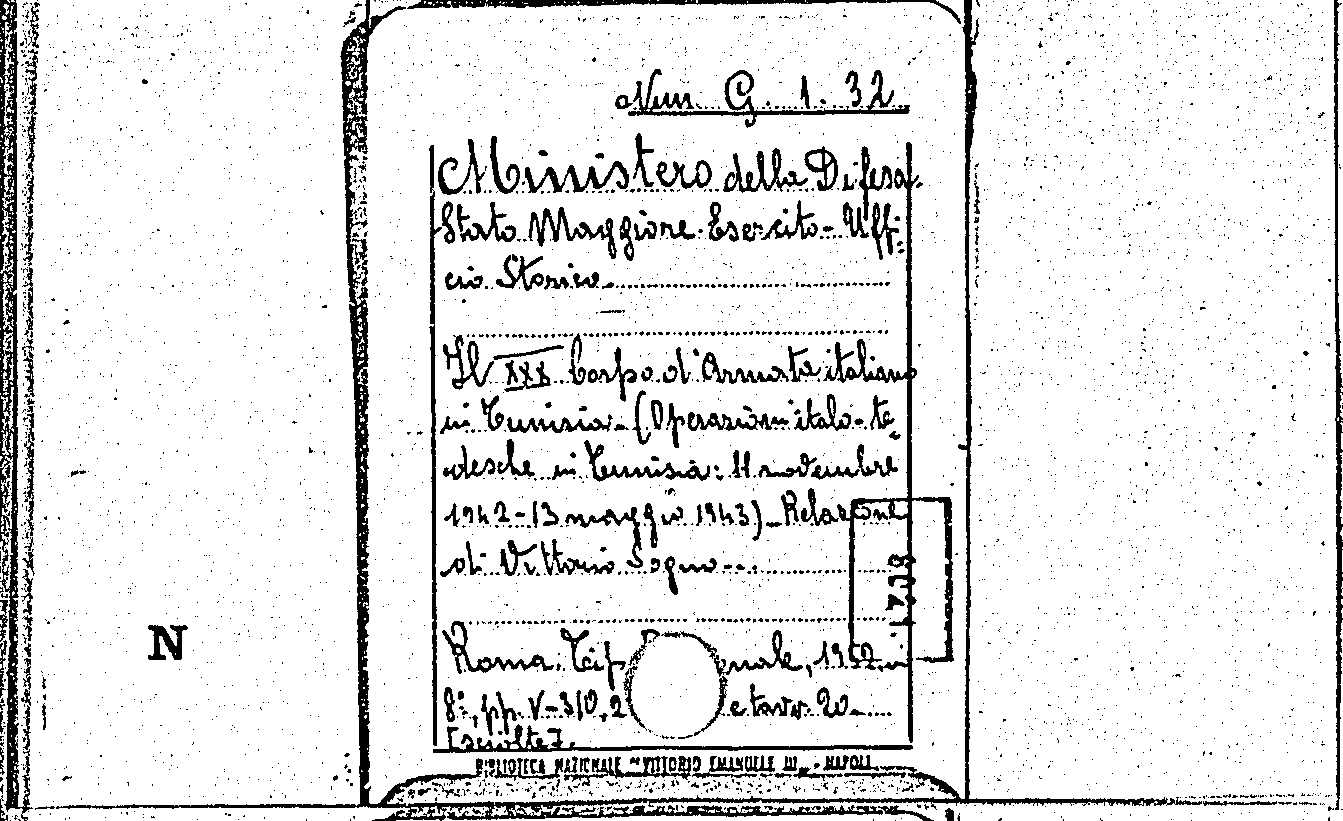 Num. G. 1. 32
Ministero della Difesa.
Stato Maggiore Esercito - Uffi=
cio Storico.
Il XXX Corpo d'Armata italiano
in Tunisia. (Operazioni italo-te=
desche in Tunisia: 11 novembre
1942-13 maggio 1943) - Relazione
di Vittorio Sogno...
Roma. Tip. 1952. in
8°, pp. V-310, 2 e tavv. 20
[sciolte].
N
BIBLIOTECA NAZIONALE "VITTORIO EMANUELE III" - NAPOLI